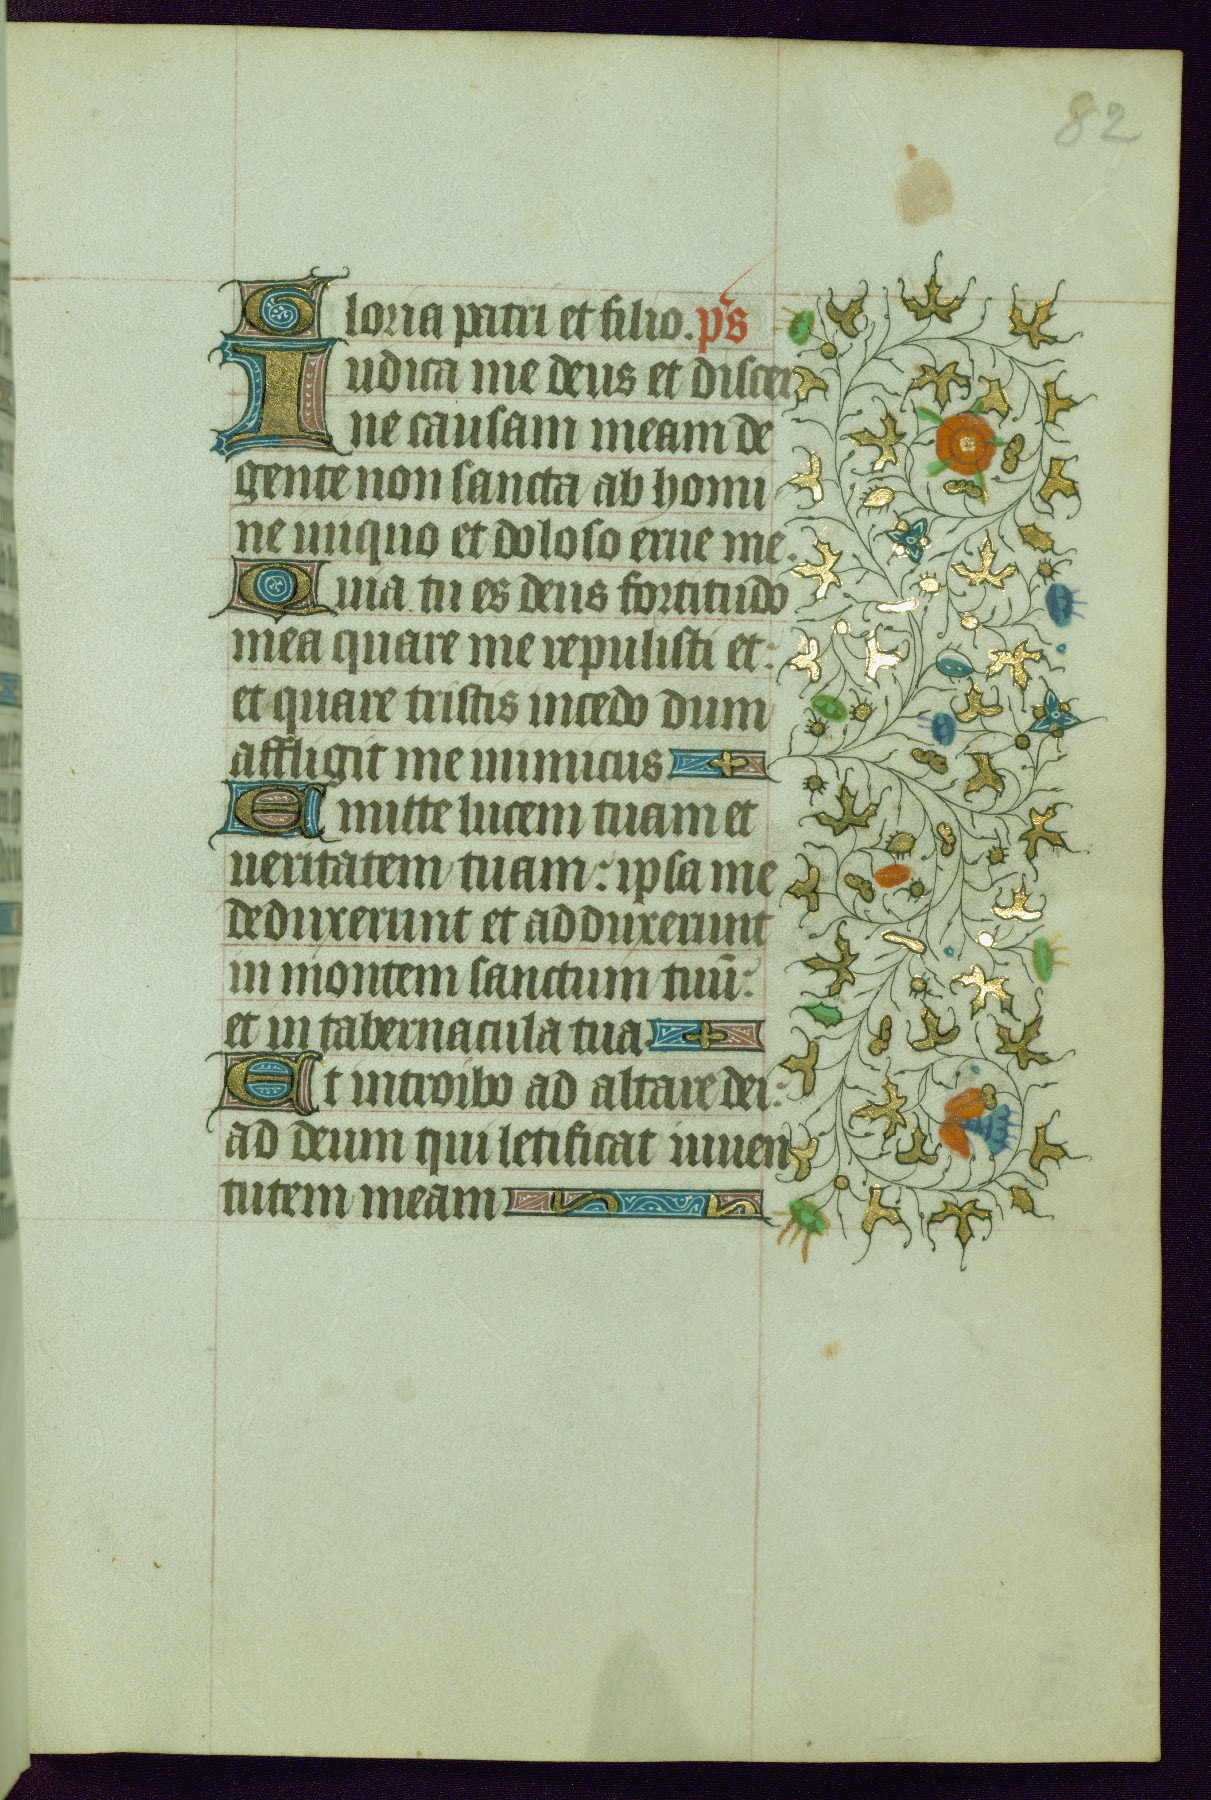 82
Gloria patri et filio. ps̄
Iudica me deus et discer
ne causam meam de
gente non sancta ab homi
ne iniquo et doloso erue me.
Quia tu es deus fortitudo
mea quare me repulisti et:
et quare tristis incedo dum
affligit me inimicus
Emitte lucem tuam et
ueritatem tuam: ipsa me
deduxerunt et adduxerunt
in montem sanctum tuū:
et in tabernacula tua
Et introibo ad altare dei:
ad deum qui letificat iuuen
tutem meam